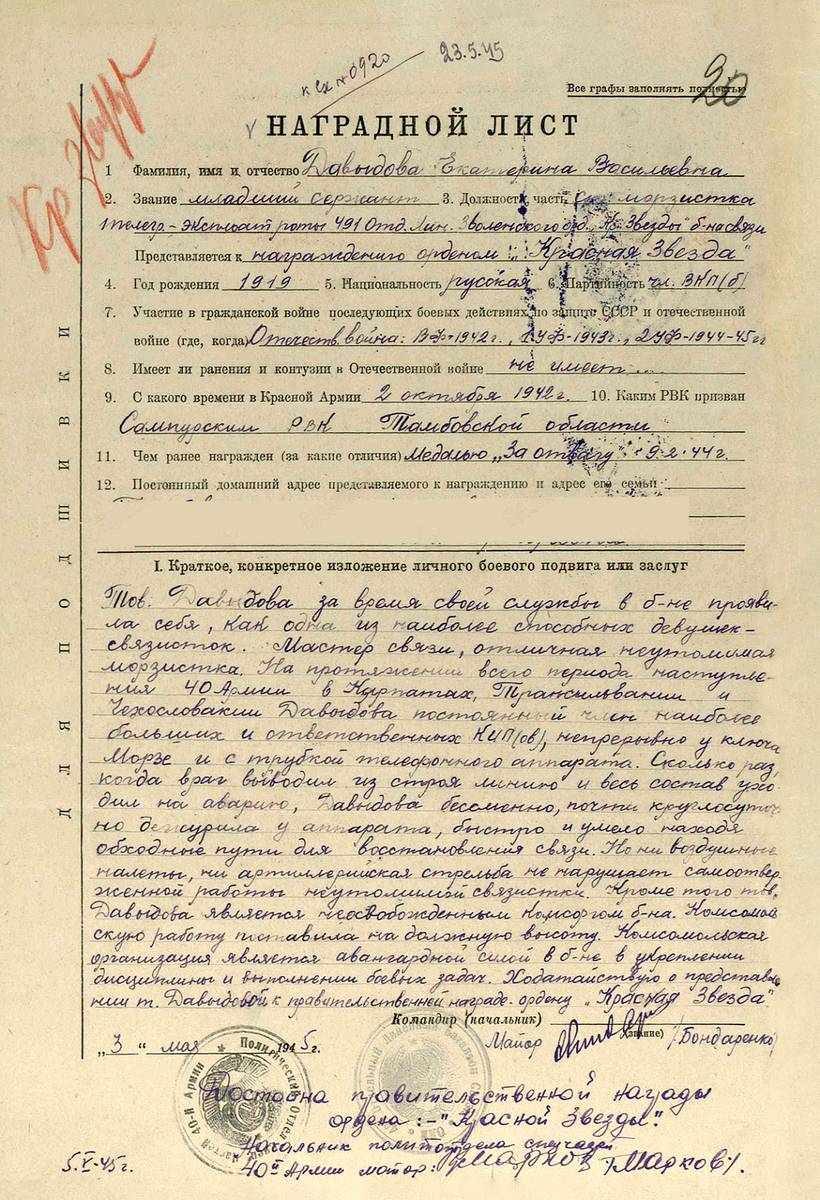 к вх № 0920
23.5.45
Все графы заполнять полностью
20
Кр Звезд
НАГРАДНОЙ ЛИСТ
1 Фамилия, имя и отчество Давыдова Екатерина Васильевна
2. Звание младший сержант 3. Должность, часть морзистка
1 телегр.-эксплоат роты 491 Отд. Лин. Зволенского орд. „Кр. Звезды" б-на связи
Представляется к награждению орденом: „Красная Звезда"
4. Год рождения 1919 5. Национальность русская 6. Партийность чл. ВКП(б)
7. Участие в гражданской войне последующих боевых действиях по защите СССР и отечественной
войне (где, когда) Отечеств. война: ВФ-1942г., 1УФ-1943г., 2УФ-1944-45гг
8. Имеет ли ранения и контузии в Отечественной войне не имеет
9. С какого времени в Красной Армии 2 октября 1942г. 10. Каким РВК призван
Сампурским РВК Тамбовской области
11. Чем ранее награжден (за какие отличия) Медалью „За отвагу" 9.2.44г.
12. Постоянный домашний адрес представляемого к награждению и адрес его семьи
ДЛЯ ПОДШИВКИ
I. Краткое, конкретное изложение личного боевого подвига или заслуг
Тов. Давыдова за время своей службы в б-не прояви-
ла себя, как одна из наиболее способных девушек-
связисток. Мастер связи, отличная неутомимая
морзистка. На протяжении всего периода наступле-
ния 40 Армии в Карпатах, Трансильвании и
Чехословакии Давыдова постоянный член наиболее
больших и ответственных КИП(ов), непрерывно у ключа
Морзе и с трубкой телефонного аппарата. Сколько раз,
когда враг выводил из строя линию и весь состав ухо-
дил на аварию, Давыдова бессменно, почти круглосуточ-
но дежурила у аппарата, быстро и умело находя
обходные пути для восстановления связи. Но ни воздушные
налеты, ни артиллерийская стрельба не нарушает самоотвер-
женной работы неутомимой связистки. Кроме того тов.
Давыдова является неосвобожденным комсоргом б-на. Комсомоль-
скую работу поставила на должную высоту. Комсомольская
организация является авангардной силой в б-не в укреплении
дисциплины и выполнении боевых задач. Ходатайствую о представле-
нии т. Давыдовой к правительственной награде- ордену „Красная Звезда".
Командир (начальник)
(звание)
„3" мая 1945г. Майор /Бондаренко/
Политический Отдел
Частей 40-й Армии
Достойна правительственной награды
ордена:-"Красной Звезды".
Начальник политотдела спецчастей
40й Армии майор: Марков /Марков/.
5.V-45г.